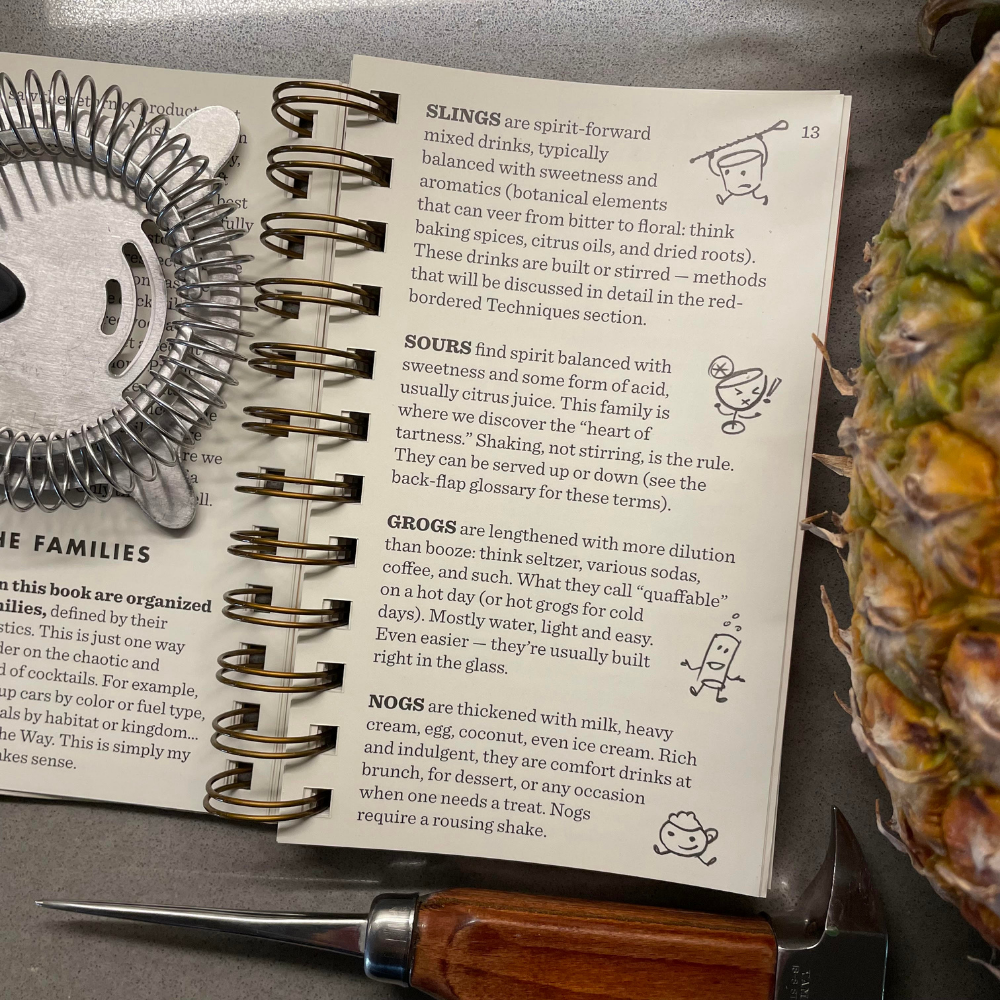 HE FAMILIES
n this book are organized
milies, defined by their
stics. This is just one way
der on the chaotic and
d of cocktails. For example,
up cars by color or fuel type,
als by habitat or kingdom...
he Way. This is simply my
akes sense.
13
SLINGS are spirit-forward
mixed drinks, typically
balanced with sweetness and
aromatics (botanical elements
that can veer from bitter to floral: think
baking spices, citrus oils, and dried roots).
These drinks are built or stirred — methods
that will be discussed in detail in the red-
bordered Techniques section.
SOURS find spirit balanced with
sweetness and some form of acid,
usually citrus juice. This family is
where we discover the “heart of
tartness.” Shaking, not stirring, is the rule.
They can be served up or down (see the
back-flap glossary for these terms).
GROGS are lengthened with more dilution
than booze: think seltzer, various sodas,
coffee, and such. What they call “quaffable”
on a hot day (or hot grogs for cold
days). Mostly water, light and easy.
Even easier — they’re usually built
right in the glass.
NOGS are thickened with milk, heavy
cream, egg, coconut, even ice cream. Rich
and indulgent, they are comfort drinks at
brunch, for dessert, or any occasion
when one needs a treat. Nogs
require a rousing shake.